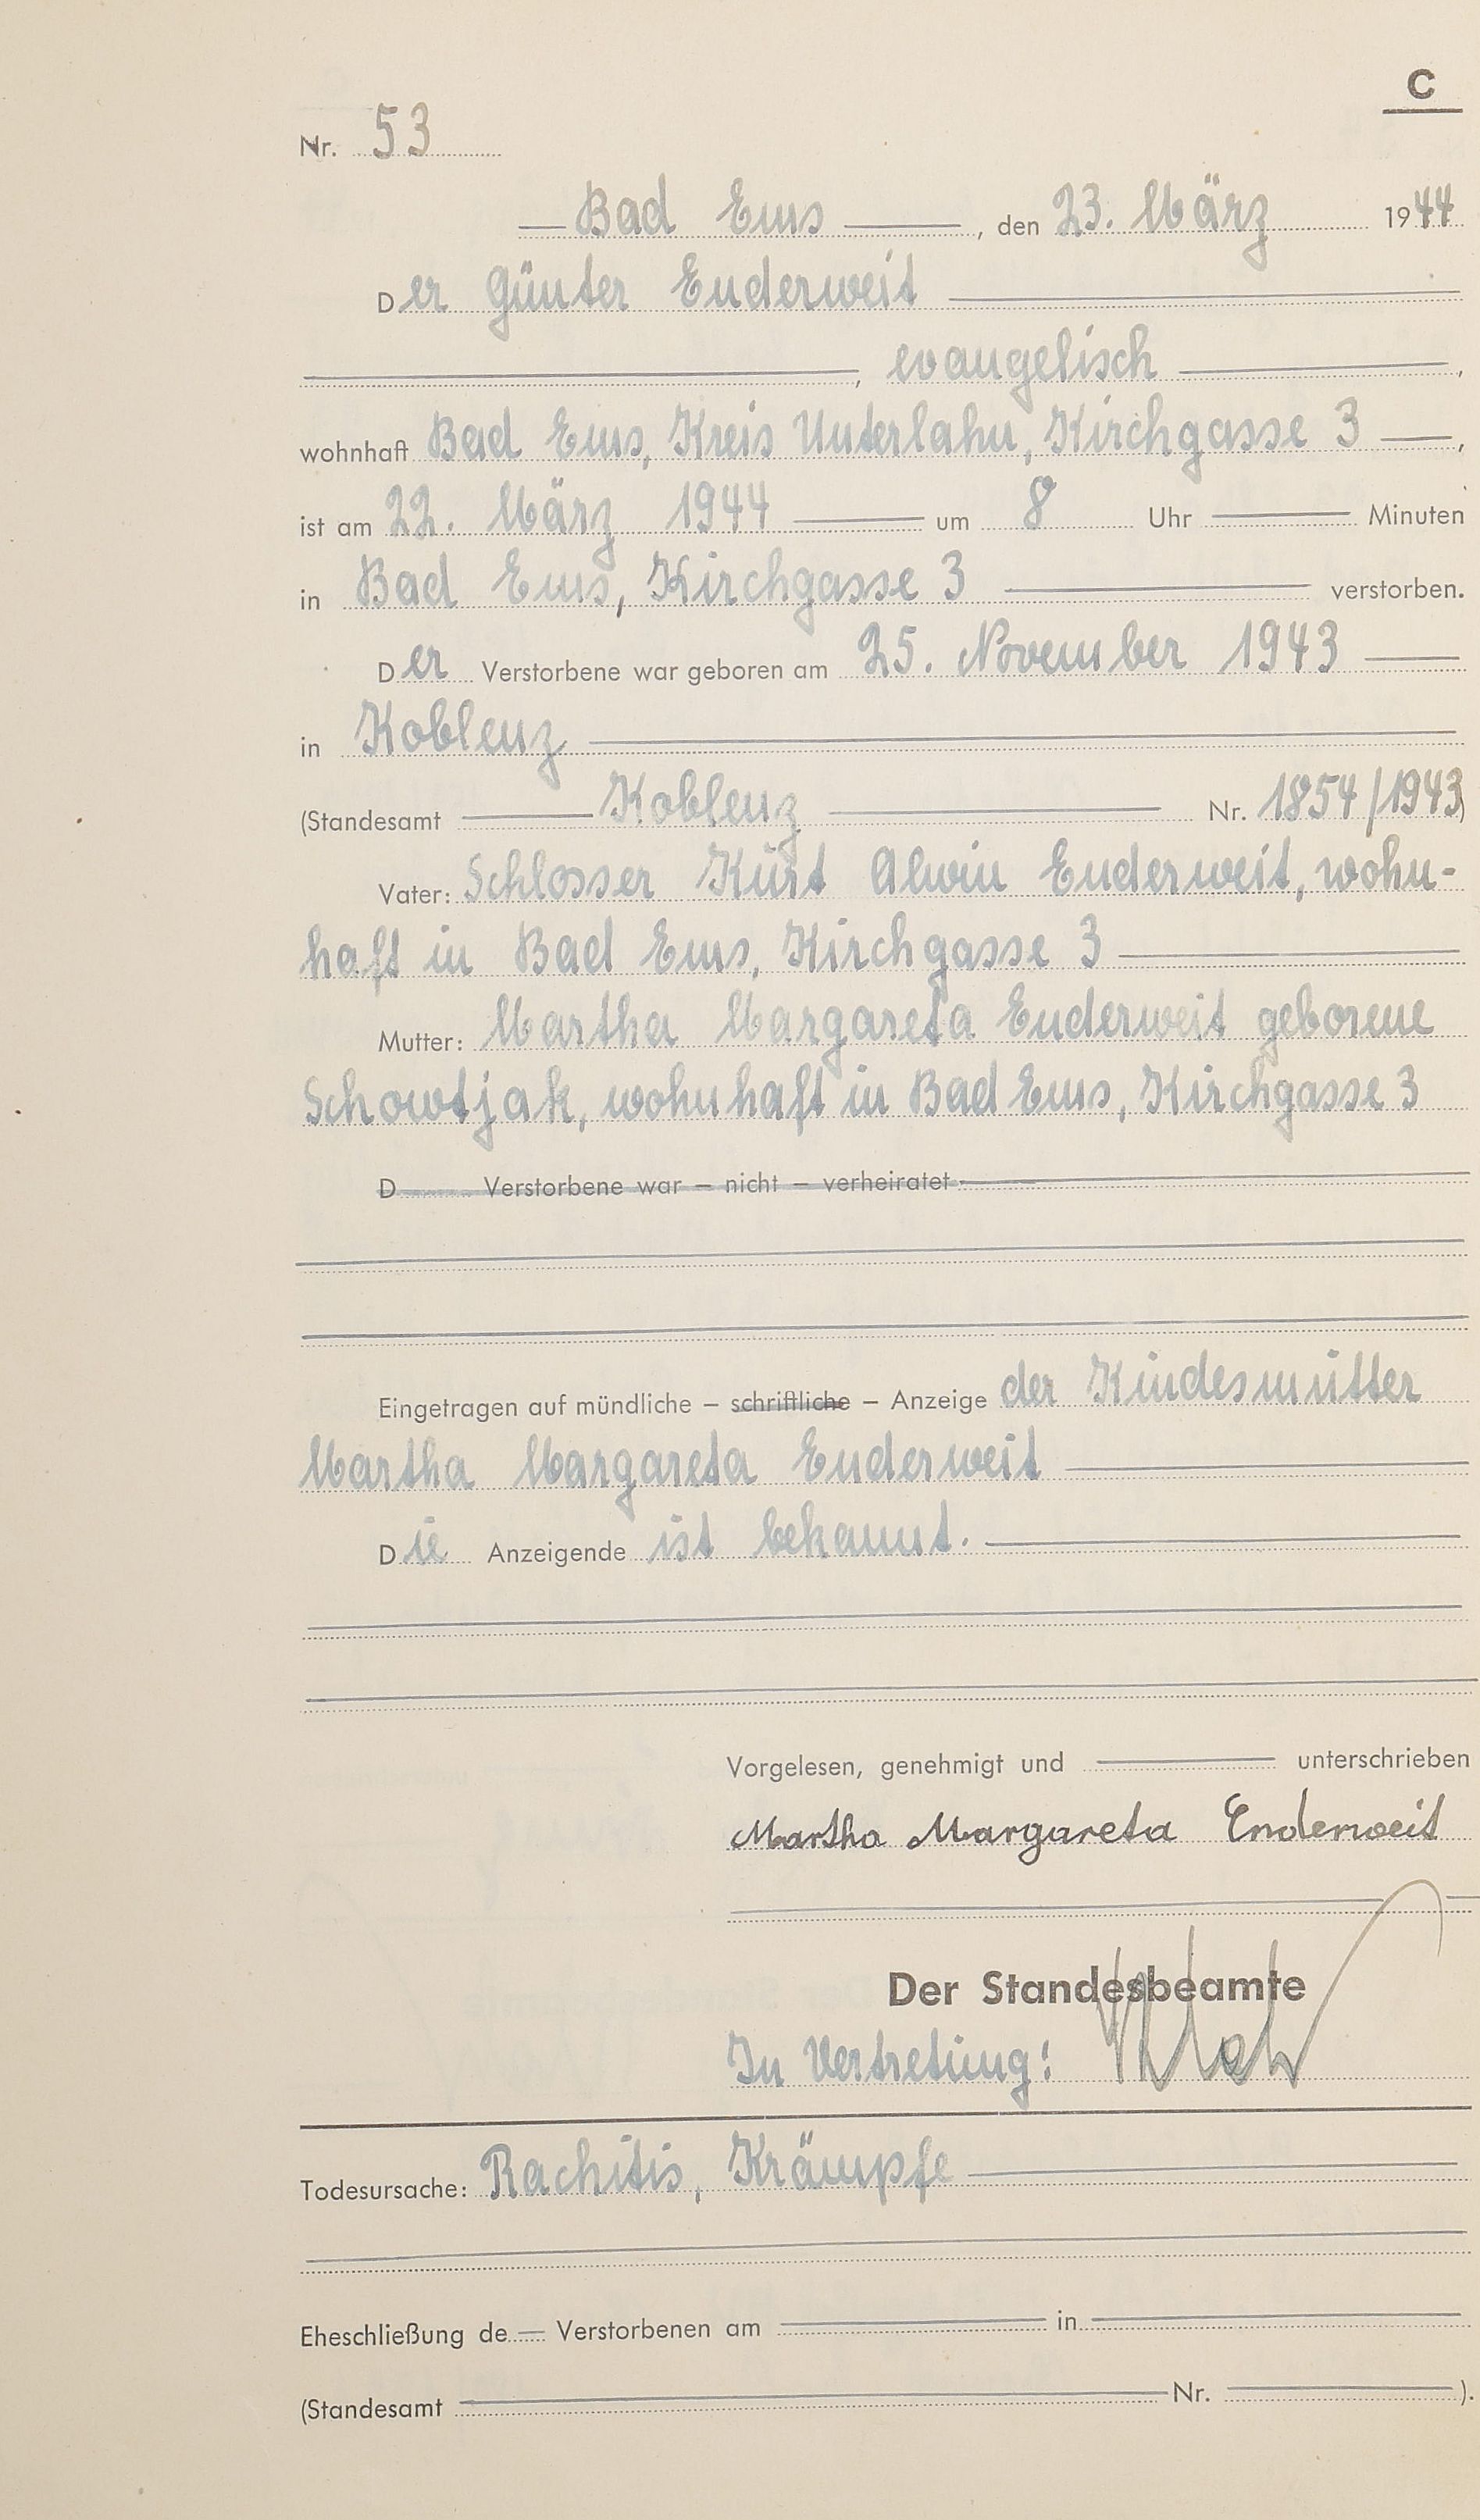 C
Nr. 53
Bad Ems, den 23. März 1944
Der Günter Enderweit
, evangelisch,
wohnhaft Bad Ems, Kreis Unterlahn, Kirchgasse 3,
ist am 22. März 1944 um 8 Uhr Minuten
in Bad Ems, Kirchgasse 3 verstorben.
Der Verstorbene war geboren am 25. November 1943
in Koblenz
(Standesamt Koblenz Nr. 1854/1943)
Vater: Schlosser Kurt Alwin Enderweit, wohn-
haft in Bad Ems, Kirchgasse 3
Mutter: Martha Margareta Enderweit geborene
Schowtjak, wohnhaft in Bad Ems, Kirchgasse 3
D Verstorbene war – nicht – verheiratet
Eingetragen auf mündliche – schriftliche – Anzeige der Kindesmutter
Martha Margareta Enderweit
Die Anzeigende ist bekannt.
Vorgelesen, genehmigt und unterschrieben
Martha Margareta Enderweit
Der Standesbeamte
In Vertretung:
Todesursache: Rachitis, Krämpfe
Eheschließung de Verstorbenen am in
(Standesamt Nr. ).